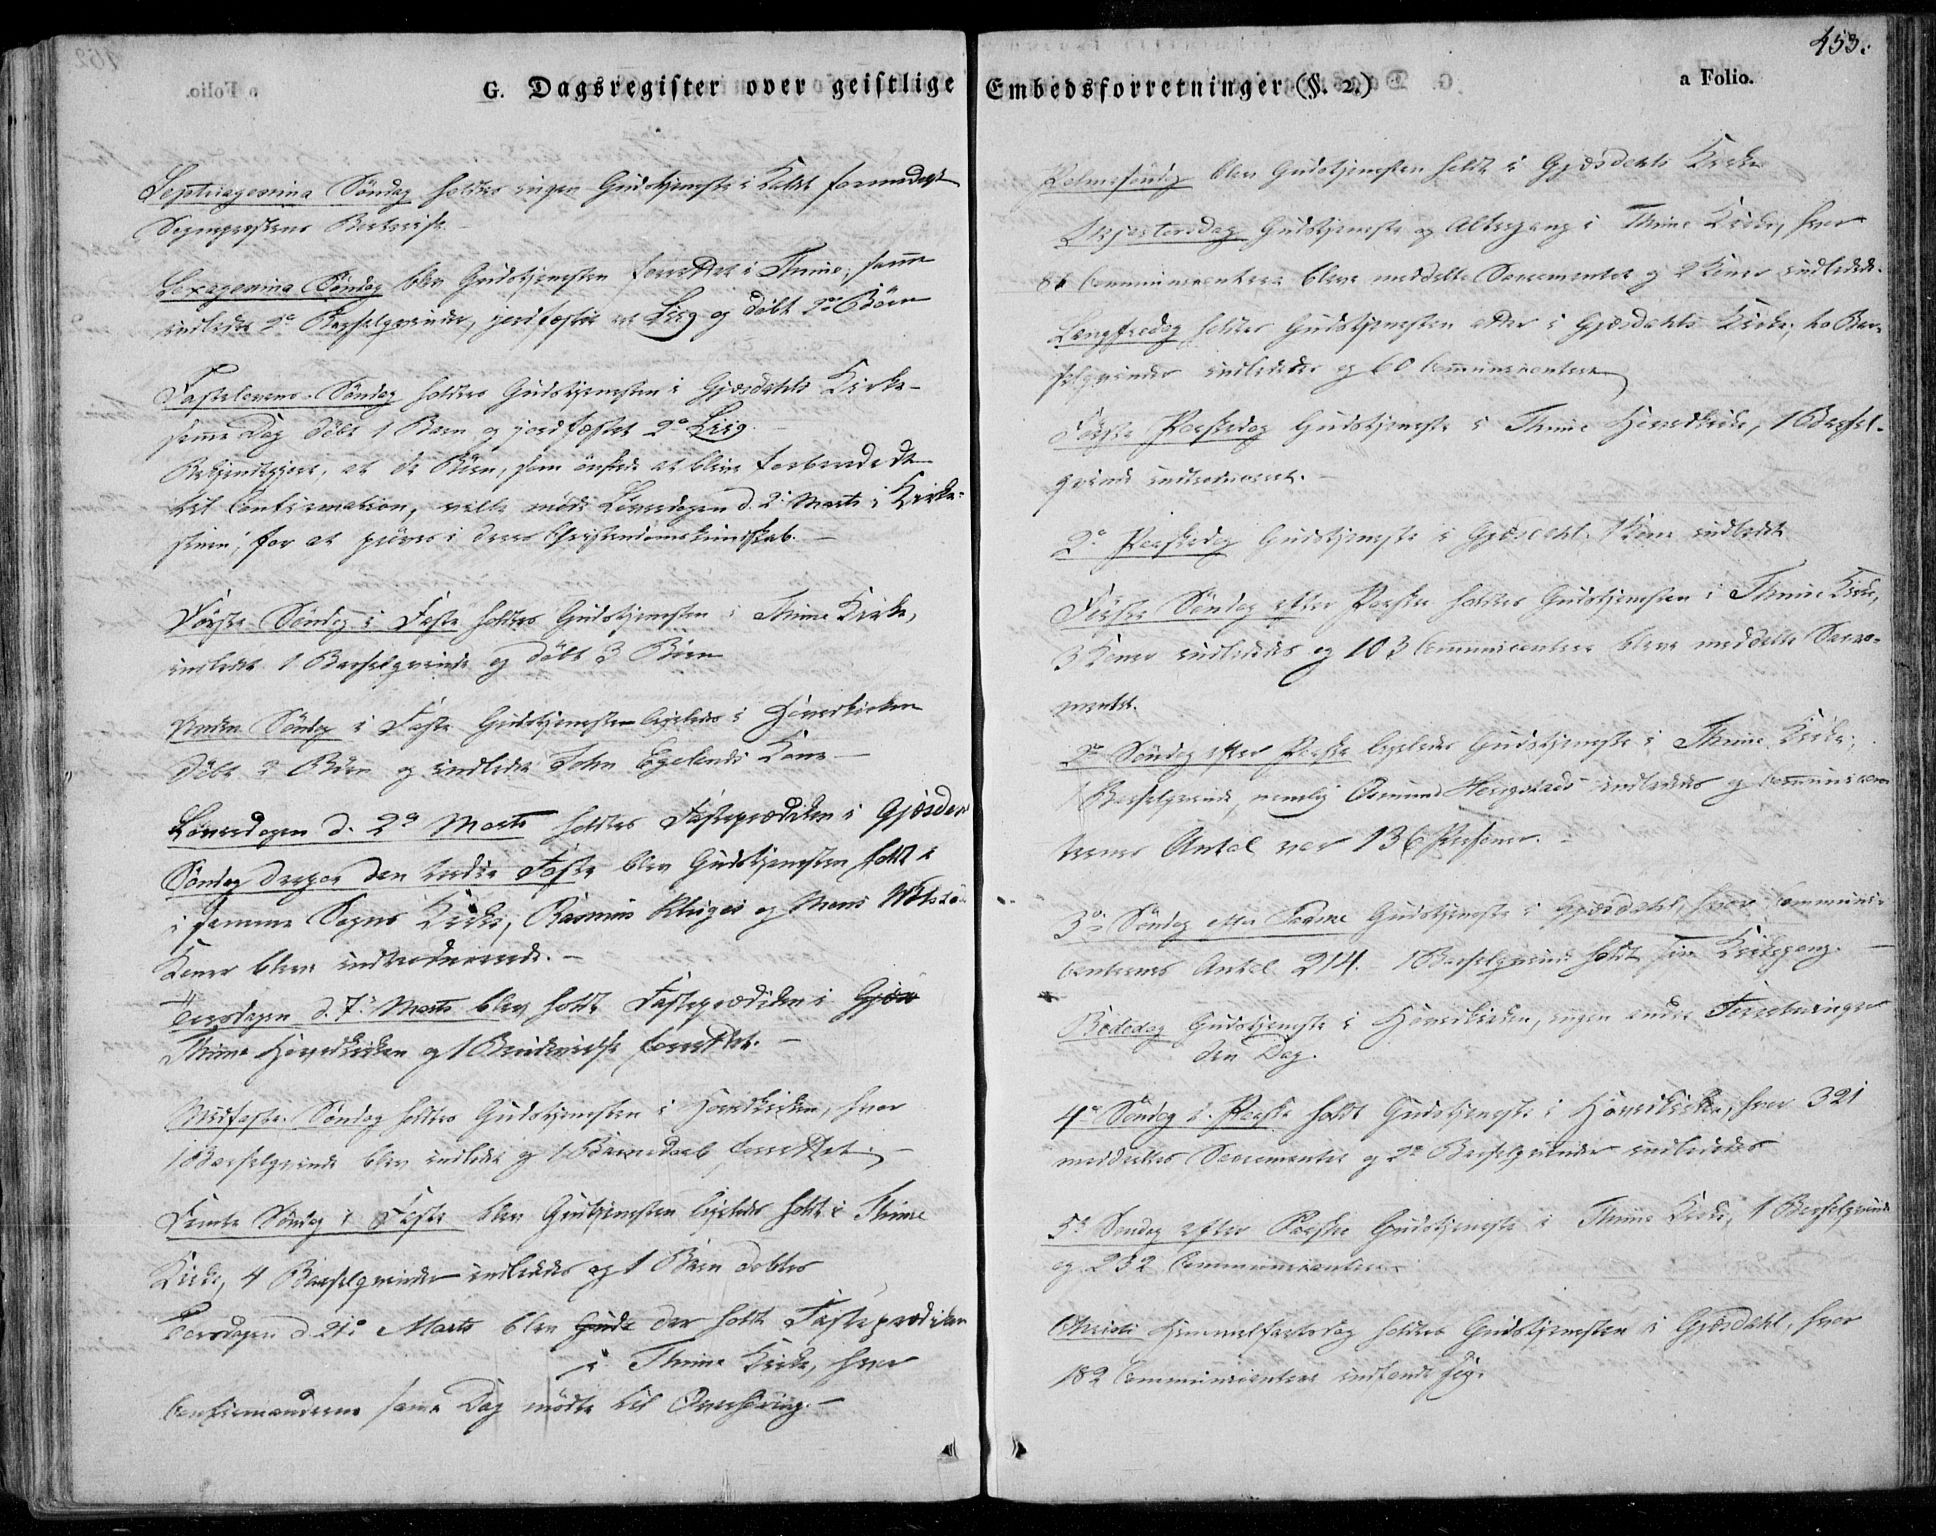 G. Dagsregister over geistlige Embedsforretninger (§. 2.)
a Folio.
453.
Septuagesima Söndag holdtes ingen Gudstjeneste i Kaldet formedelst
Sognepræstens Bortreise.
Sexagesima Söndag blev Gudstjenesten forrettet i Thime, samme
indledet 2de Barselqvinder, jordfæstet et Liig og döbt 2de Börn
Fastelavens-Söndag holdtes Gudstjenesten i Gjæsdahls Kirke
samme Dag döbt 1 Barn og jordfæstet 2de Liig.
Bekjendtgjort, at de Börn, som önskede at blive forberedede
til Confirmation, ville möde Löverdagen d. 2de Marts i Kirke-
stuen, for at pröves i deres Christendomskundskab.
Förste Söndag i Faste holdtes Gudstjenesten i Thime Kirke,
indledet 1 Barselqvinde og döbt 3 Börn
Anden Söndag i Faste Gudstjenesten ligeledes i Hovedkirken
döbt 2 Börn og indledet John Egelands Kone
Löverdagen d. 2den Marts holdtes Fasteprædiken i Gjæsdal
Söndag derpaa den tredie Faste blev Gudstjenesten holdt i
i samme Sogns Kirke, Rasmus Kluges og Mons
Koner bleve introducerede.
Torsdagen d. 7de Marts blev holdt Fasteprædiken i Gjæs
Thime Hovedkirken og 1 Brudevielse forrettet.
Midfaste Söndag holdtes Gudstjenesten i Hovedkirken, hvor
1 Barselqvinde blev indledet og 1 Barnedaab forrettet.
Femte Söndag i Faste blev Gudstjenesten ligeledes holdt i Thime
Kirke, 4 Barselqvinder indlededes og 1 Barn döbtes
Torsdagen d. 21de Marts blev Guds der holdt Fasteprædiken
i Thime Kirke, hvor
Confirmanderne samme Dag mödte til Overhöring.
Palmesöndag blev Gudstjenesten holdt i Gjæsdahls Kirke
Skjærtorsdag Gudstjeneste og Altergang i Thime Kirke, hvor
86 Communicantere bleve meddelte Sacramentet og 2 Koner indledede.
Langfredag holdtes Gudstjenesten atter i Gjæsdahls Kirke, to Bar-
selqvinder indlededes og 60 Communicantere
Förste Paaskedag Gudstjeneste i Thime Hovedkirke, 1 Barsel-
qvinde introduceret.
2den Paaskedag Gudstjeneste i Gjæsdahl. 1 Kone indledet
Förste Söndag efter Paaske holdtes Gudstjenesten i Thime Kirke,
3 Koner indlededes og 103 Communicantere bleve meddelte Sacra-
mentet.
2den Söndag efter Paaske ligeledes Gudstjeneste i Thime Kirke,
1 Barselqvinde, nemlig Osmund Haugstads indlededes og Communican-
ternes Antal var 136 Personer.
3die Söndag efter Paaske Gudstjeneste i Gjæsdahl, hvor Communi-
canternes Antal 214. 1 Barselqvinde holdt sin Kirkegang.
Bededag Gudstjeneste i Hovedkirken, ingen andre Forretninger
den Dag.
4de Söndag e. Paaske holdt Gudstjeneste i Hovedkirken, hvor 321
meddeeltes Sacramentet og 2de Barselqvinder indlededes
5te Söndag efter Paaske Gudstjeneste i Thime Kirke, 1 Barselqvinde
og 232 Communicantere
Christi Himmelfartsdag holdtes Gudstjenesten i Gjæsdahl, hvor
182 Communicantere indfandt sig.